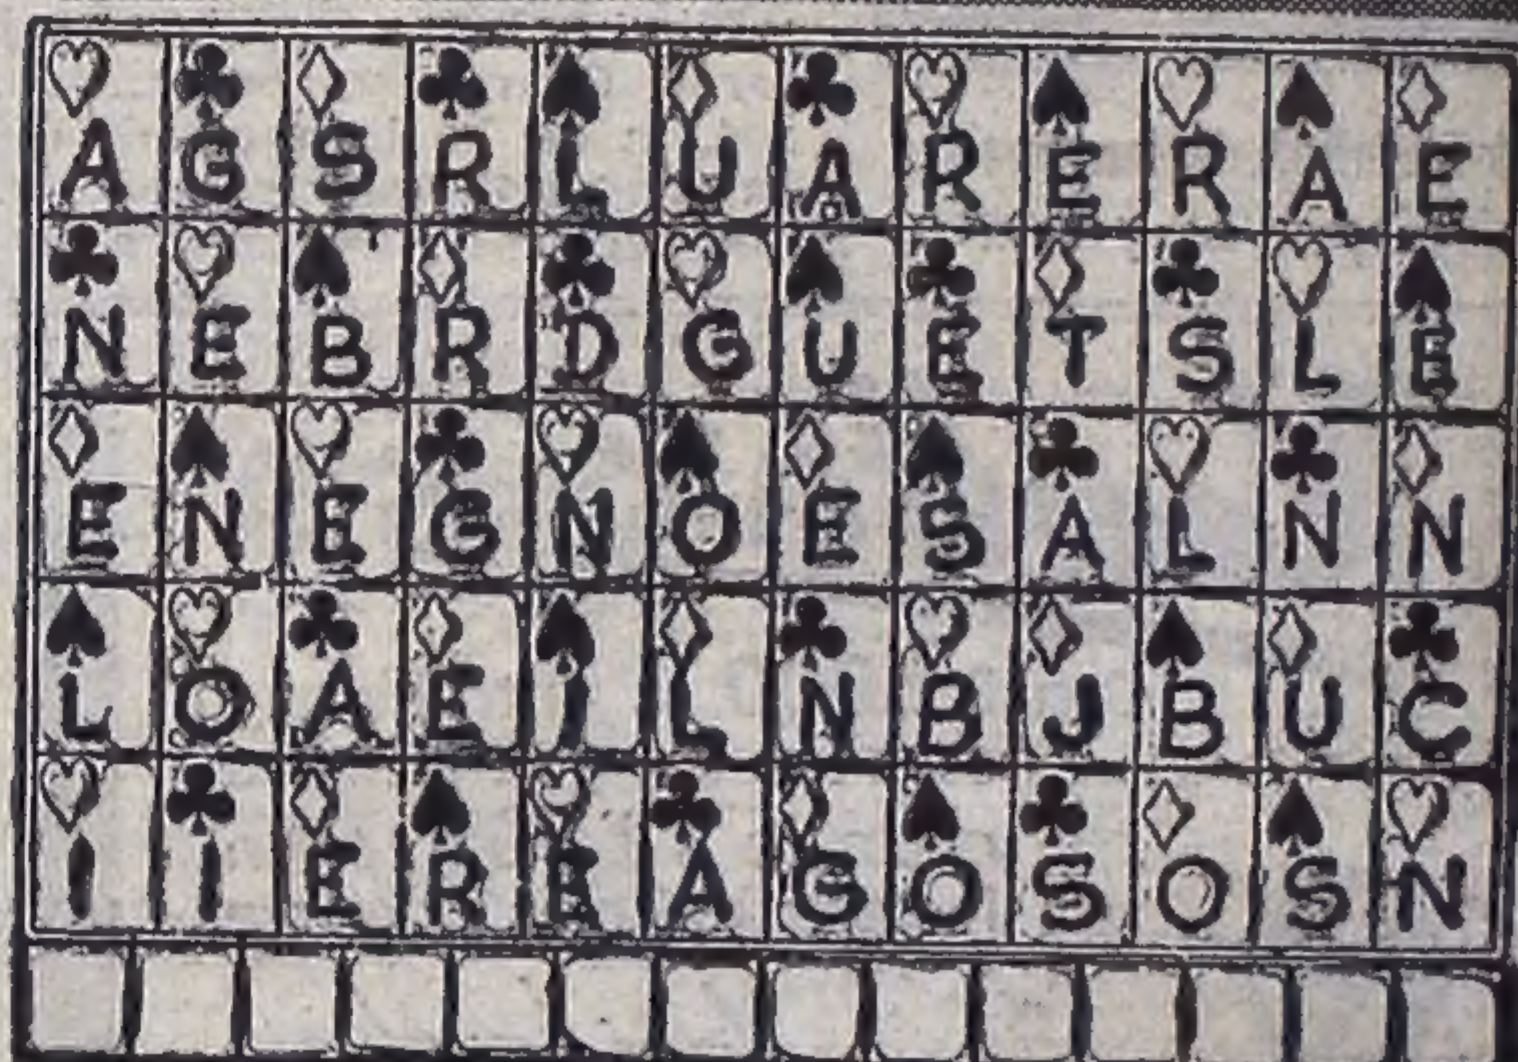 ♡A ♣G ♢S ♣R ♠L ♢U ♣A ♡R ♠E ♡R ♠A ♢E
♣N ♡E ♠B ♢R ♣D ♡G ♠U ♣E ♢T ♣S ♡L ♠E
♢E ♠N ♡E ♣G ♡N ♠O ♢E ♠S ♣A ♡L ♣N ♢N
♠L ♡O ♣A ♢E ♠I ♢L ♣N ♡B ♢J ♠B ♢U ♣C
♡I ♣I ♢E ♠R ♡E ♣A ♢G ♠O ♣S ♢O ♠S ♡N